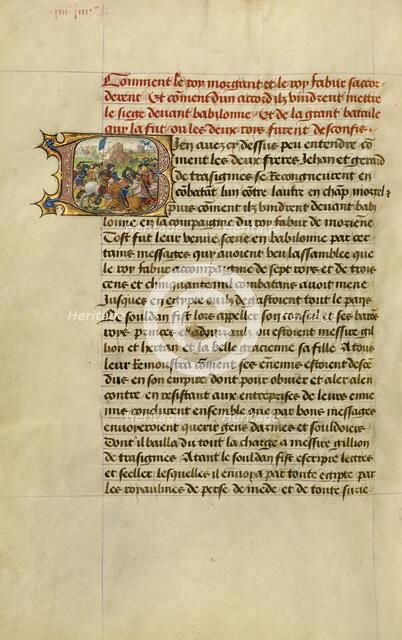 Comment le roy morgant et le roy fabur saccor
derent Et coment dun accord ilz vindrent mettre
le siege devant babilonne / Et de la grant bataile
quy la fut / ou les deux roys furent desconfis ~
Bien auez cy dessus peu entendre co
ment les deux freres Jehan et gerard
de trasignies se Recongneurent en
cobatant lun cotre lautre en chap mortel
puis coment ilz vindrent deuant babi
lonne en la compaignie du roy fabur de moriene
Tost fut leur venue sceue en babilonne par cer
tains messages quy auoient veu lassamblee que
le roy fabur accompaignie de sept roys et de trois
cens et chincquante mil combatans auoit mene
Jusques en egipte ou ilz degastoient tout le pays
Le souldan fist lors appeller son conseil et ses barōs
roys princes et admiraulx ou estoient messire gil
lion et hertan et la belle gracienne sa fille A tous
leur Remonstra coment ses ennemis estoient descen
dus en son empire dont pour obuier et aler alen
contre en resistant aux entreprises de leurs enne
mis conclurent ensemble que par bons messages
enuoyeroient querir gens darmes et souldoiers
Dont il bailla du tout la charge a messire gillion
de trasignies Atant le souldan fist escripre lettres
et seeller lesquelles il enuoya par toute egipte par
les royaulmes de perse de mede et de toute surie
Heritage Heritage
Heritage Heritage